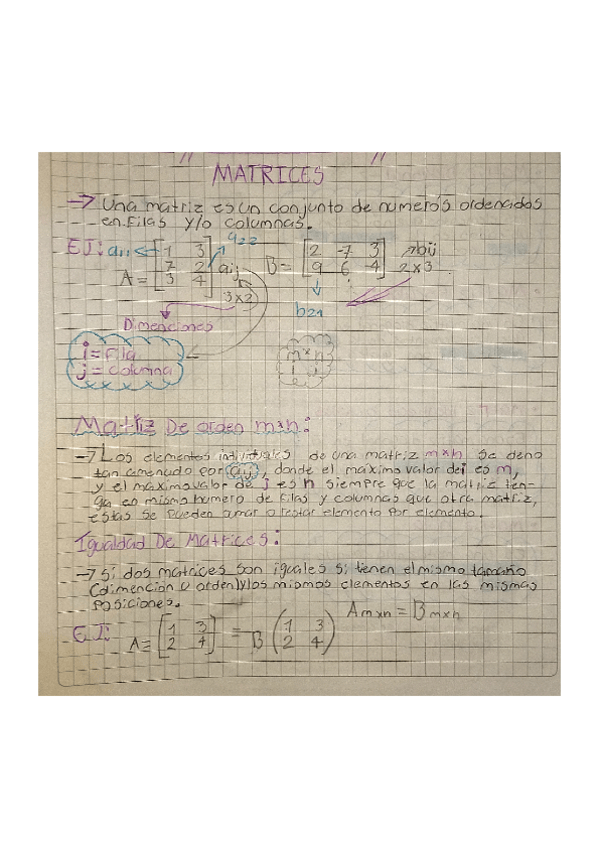 MATRICES
→ Una matriz es un conjunto de numeros ordenados
en Filas y/o columnas.
EJ: a11 ← a22
A = [1 3
7 2
3 4] aij 3x2
B = [2 -7 3
9 6 -4] → bij 2x3
b21
Dimenciones
i = Fila
j = Columna
m x n
i j
Matriz De orden mxn:
→ Los elementos individuales de una matriz mxn se deno
tan amenudo por aij, donde el máximo valor de i es m,
y el maximo valor de j es n siempre que la matriz ten-
ga en mismo numero de Filas y columnas que otra matriz,
estas se pueden sumar o restar elemento por elemento.
Igualdad De Matrices:
→ Si dos matrices son iguales si tienen el mismo tamaño
(dimencion u orden) y los mismos elementos en las mismas
posiciones.
EJ: A = [1 3
2 4] = B (1 3
2 4) Amxn = Bmxn